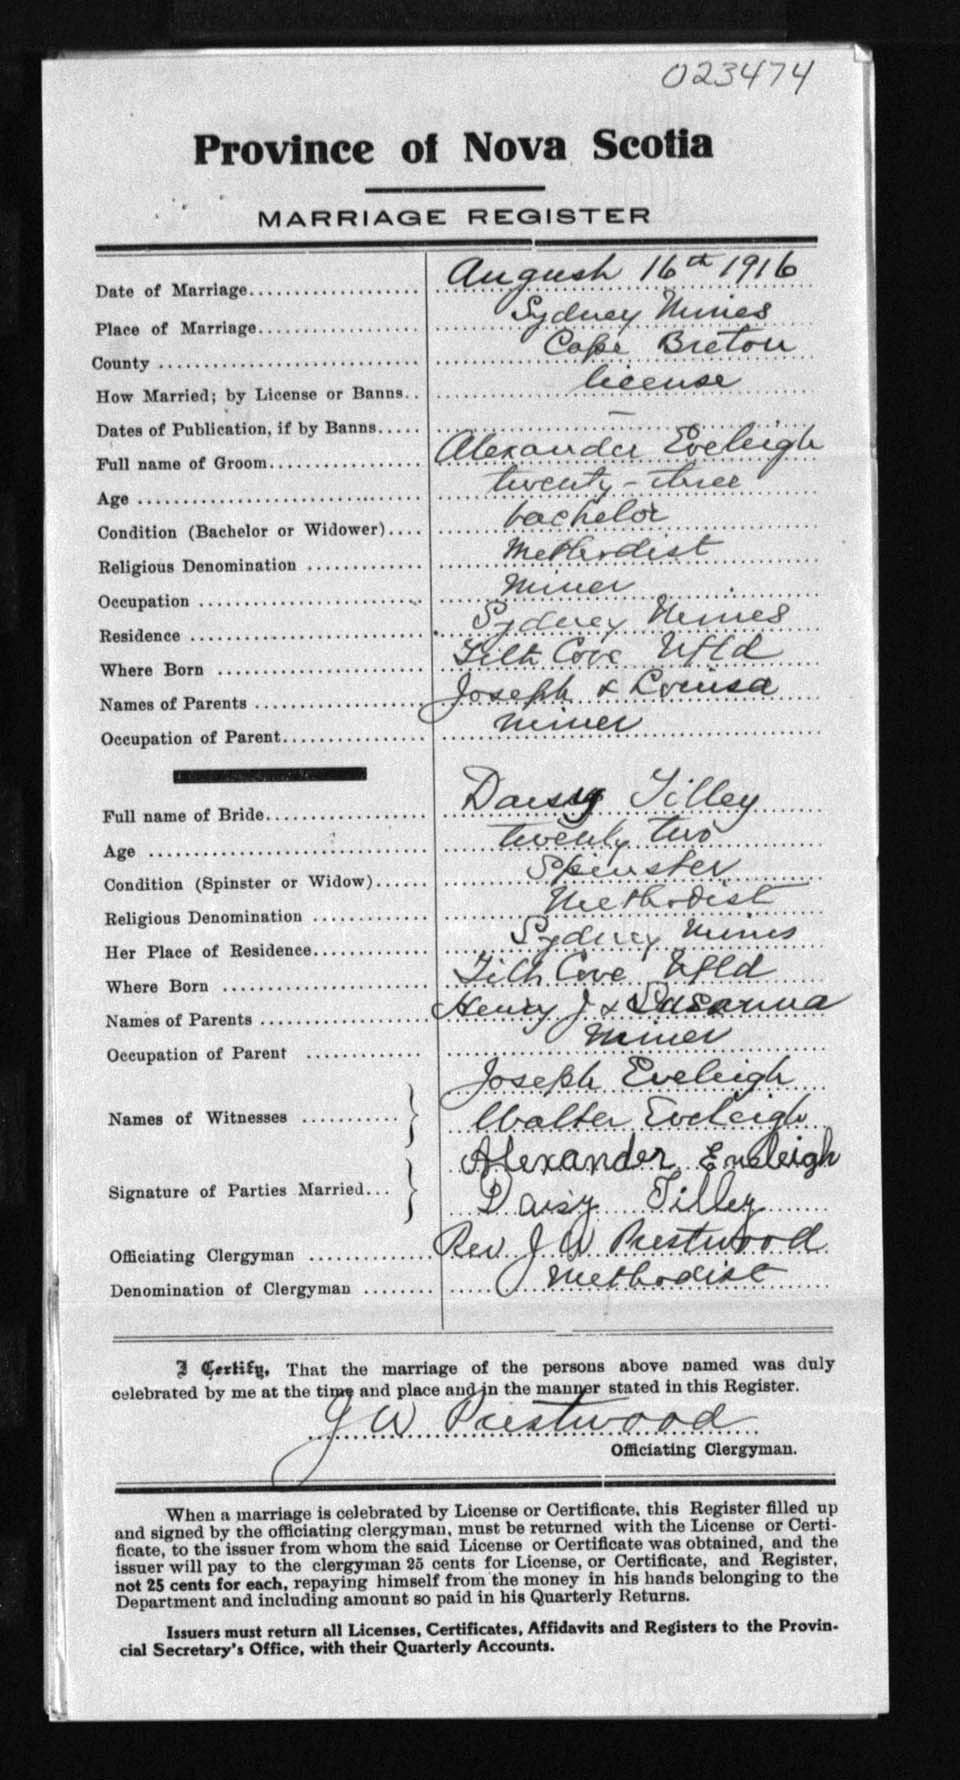 023474
Province of Nova Scotia
MARRIAGE REGISTER
Date of Marriage................... August 16th 1916
Place of Marriage................. Sydney Mines
County ............................ Cape Breton
How Married; by License or Banns.. license
Dates of Publication, if by Banns..... —
Full name of Groom................. Alexander Eveleigh
Age ................................ twenty-three
Condition (Bachelor or Widower).... bachelor
Religious Denomination ............ Methodist
Occupation ........................ miner
Residence ......................... Sydney Mines
Where Born ....................... Tilt Cove Nfld
Names of Parents .................. Joseph & Louisa
Occupation of Parent............... miner
Full name of Bride.................. Daisy Tilley
Age ................................ twenty two
Condition (Spinster or Widow)...... Spinster
Religious Denomination ............ Methodist
Her Place of Residence............. Sydney Mines
Where Born ....................... Tilt Cove Nfld
Names of Parents .................. Henry J & Susanna
Occupation of Parent ............. miner
Names of Witnesses ........... } Joseph Eveleigh
Walter Eveleigh
Signature of Parties Married... } Alexander Eveleigh
Daisy Tilley
Officiating Clergyman ............. Rev J W Prestwood
Denomination of Clergyman ........ Methodist
I Certify, That the marriage of the persons above named was duly
celebrated by me at the time and place and in the manner stated in this Register.
J W Prestwood
Officiating Clergyman.
When a marriage is celebrated by License or Certificate, this Register filled up
and signed by the officiating clergyman, must be returned with the License or Certi-
ficate, to the issuer from whom the said License or Certificate was obtained, and the
issuer will pay to the clergyman 25 cents for License, or Certificate, and Register,
not 25 cents for each, repaying himself from the money in his hands belonging to the
Department and including amount so paid in his Quarterly Returns.
Issuers must return all Licenses, Certificates, Affidavits and Registers to the Provin-
cial Secretary's Office, with their Quarterly Accounts.